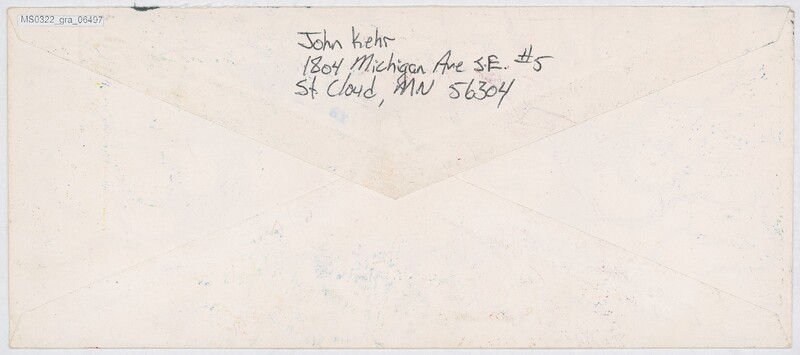 MS0322_gra_06497
John Kehr
1804 Michigan Ave S.E. #5
St Cloud, MN 56304